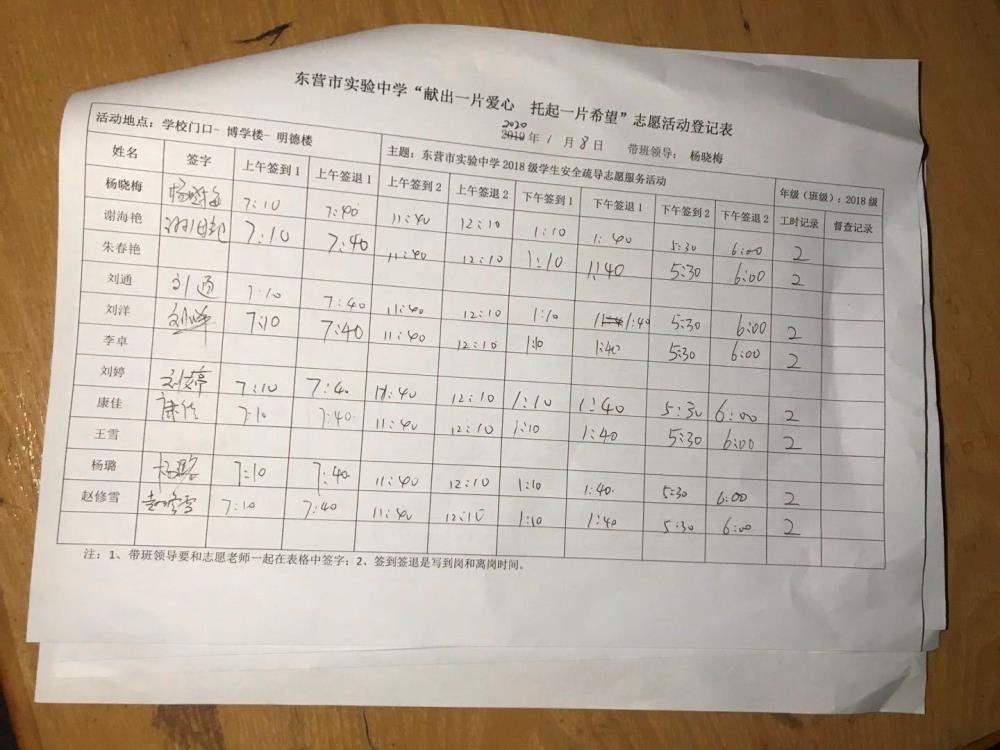 东营市实验中学“献出一片爱心 托起一片希望”志愿活动登记表
2020
2019 年 1 月 8 日 带班领导： 杨晓梅
活动地点：学校门口- 博学楼- 明德楼 主题：东营市实验中学 2018 级学生安全疏导志愿服务活动 年级（班级）：2018 级
姓名 签字 上午签到 1 上午签退 1 上午签到 2 上午签退 2 下午签到 1 下午签退 1 下午签到 2 下午签退 2 工时记录 督查记录
杨晓梅 杨晓梅 7:10 7:40 11:40 12:10 1:10 1:40 5:30 6:00 2
谢海艳 谢海艳 7:10 7:40 11:40 12:10 1:10 1:40 5:30 6:00 2
朱春艳
刘通 刘通 7:10 7:40 11:40 12:10 1:10 1:40 5:30 6:00 2
刘洋 刘洋 7:10 7:40 11:40 12:10 1:10 1:40 5:30 6:00 2
李卓
刘婷 刘婷 7:10 7:40 11:40 12:10 1:10 1:40 5:30 6:00 2
康佳 康佳 7:10 7:40 11:40 12:10 1:10 1:40 5:30 6:00 2
王雪
杨璐 杨璐 7:10 7:40 11:40 12:10 1:10 1:40 5:30 6:00 2
赵修雪 赵修雪 7:10 7:40 11:40 12:10 1:10 1:40 5:30 6:00 2
注：1、带班领导要和志愿老师一起在表格中签字；2、签到签退是写到岗和离岗时间。